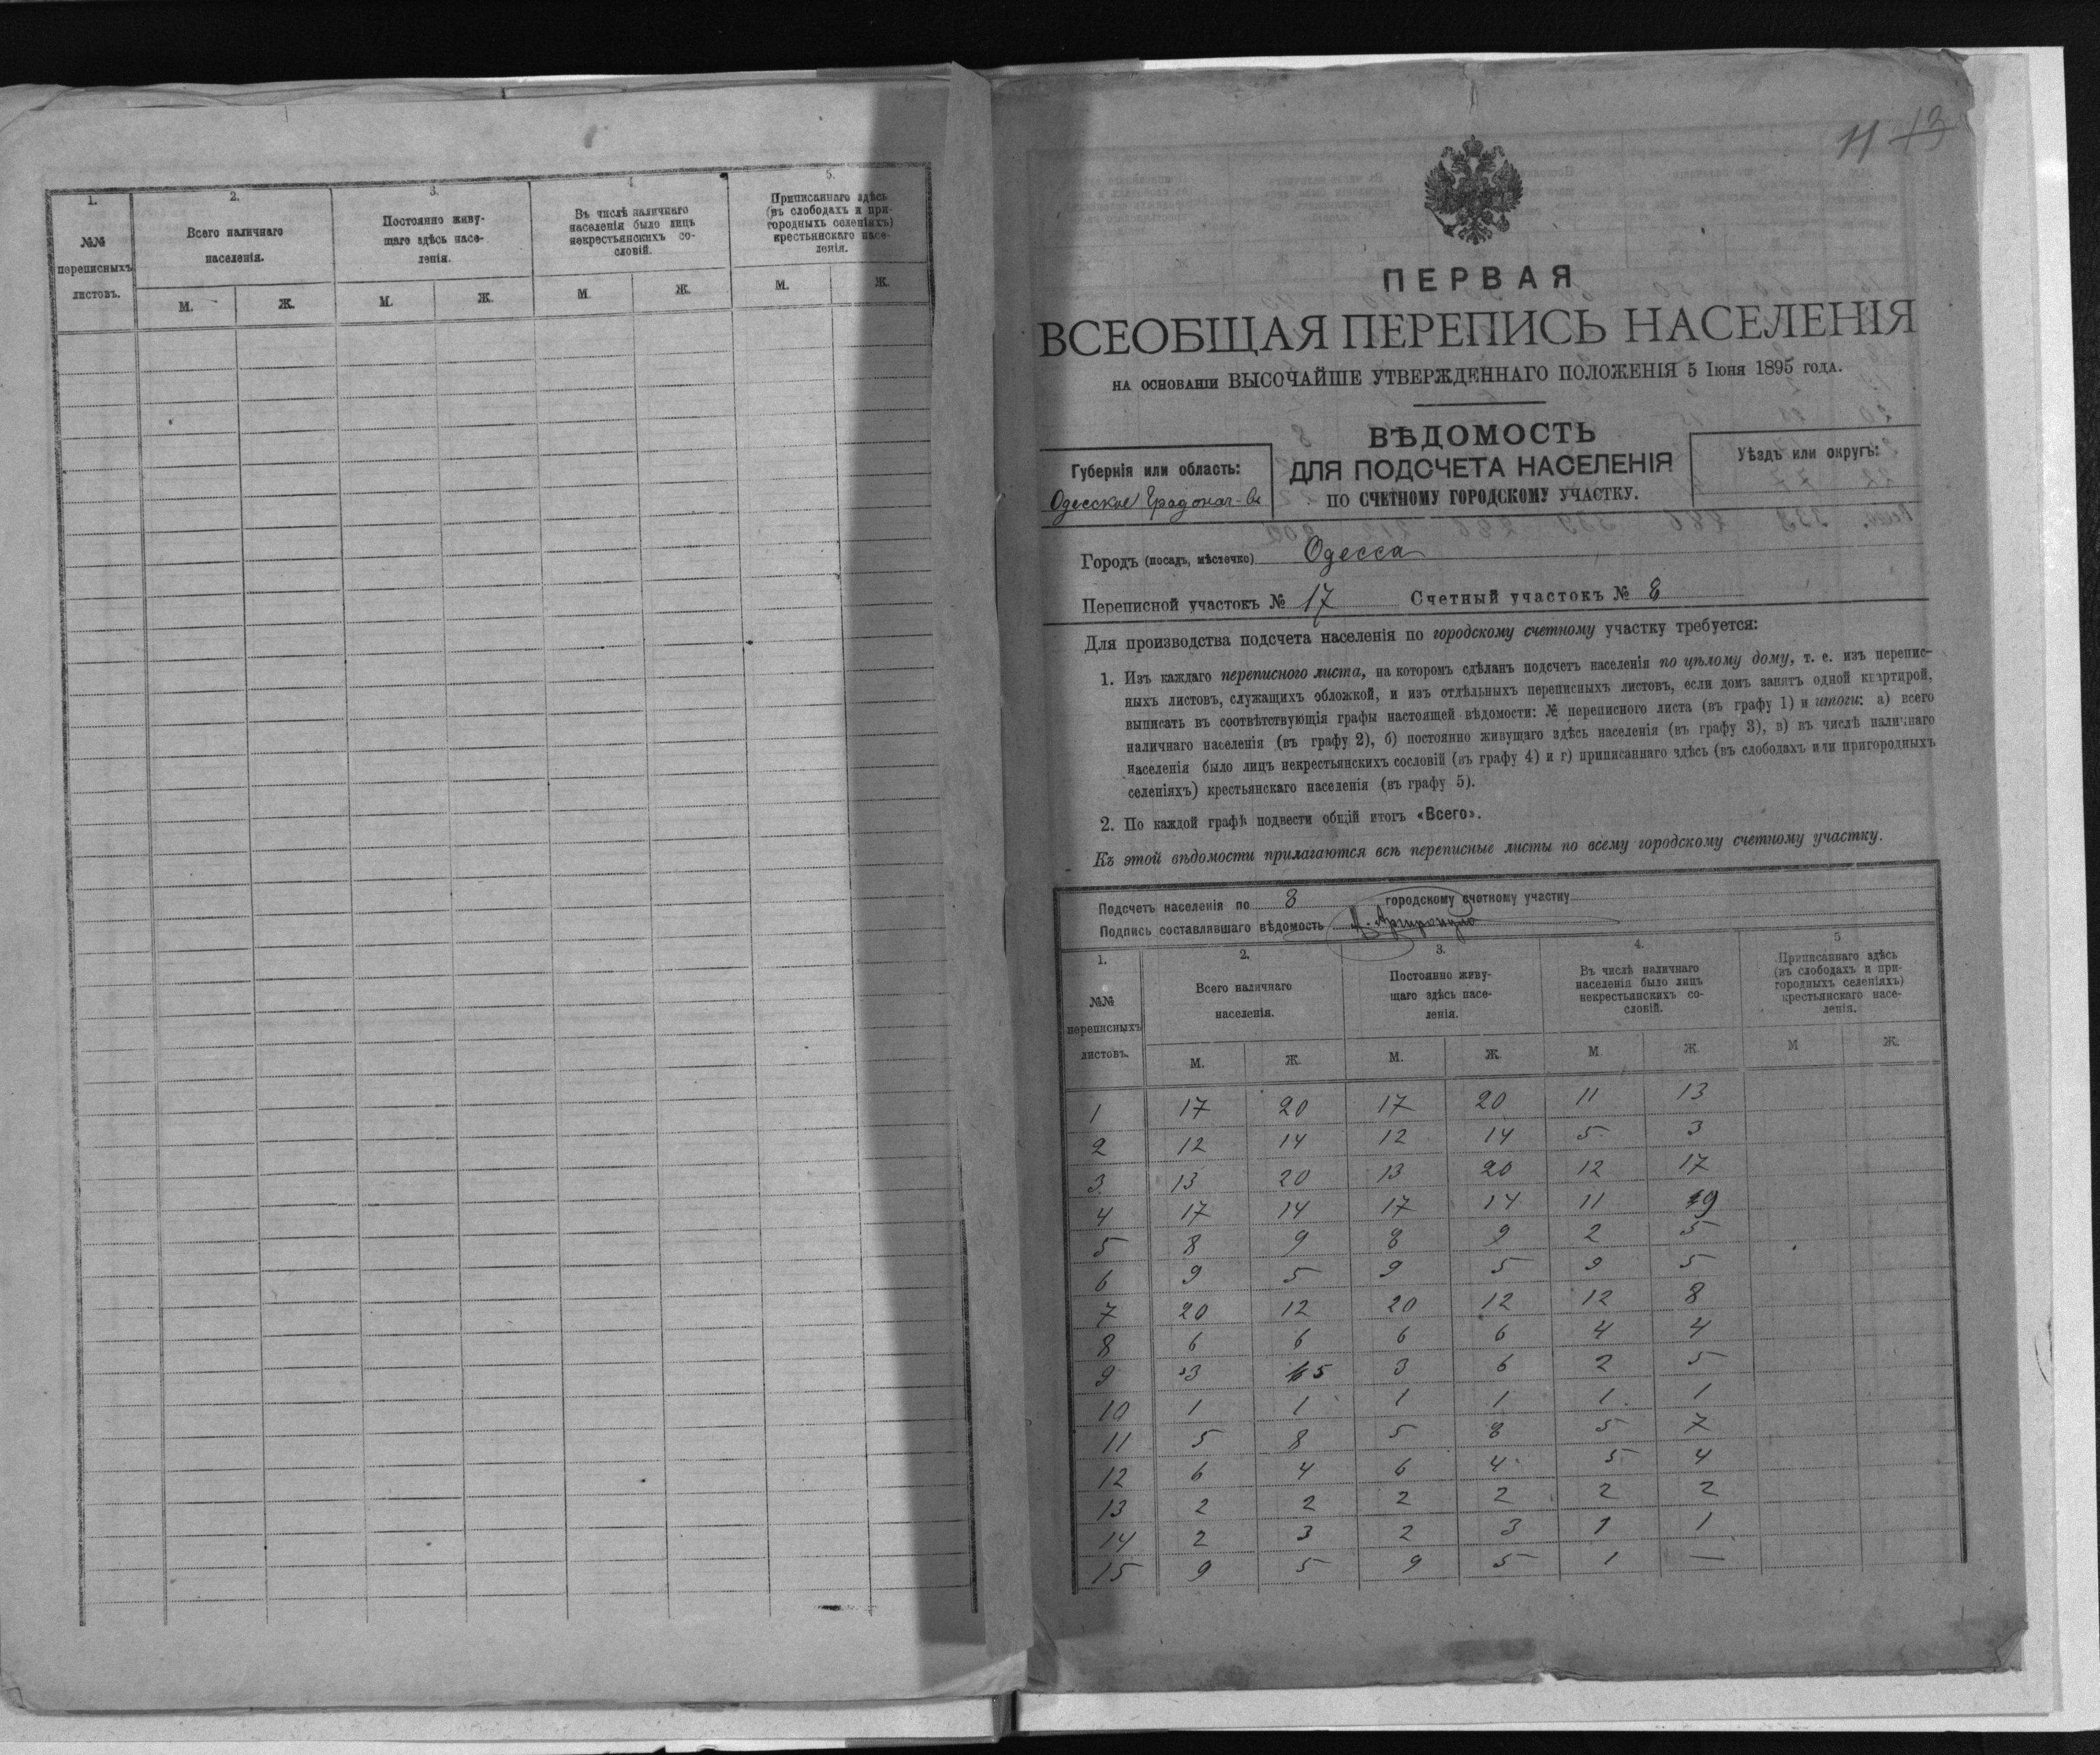 1.
2.
3.
4
5.
№№ переписныхъ листовъ.
Всего наличнаго населенія.
Постоянно живу-щаго здѣсь насе-ленія.
Въ числѣ наличнаго населенія было лицъ некрестьянскихъ со-словій.
Приписаннаго здѣсь (въ слободахъ и при-городныхъ селеніяхъ) крестьянскаго насе-ленія.
М. Ж. М. Ж. М. Ж. М. Ж.
11 13
ПЕРВАЯ
ВСЕОБЩАЯ ПЕРЕПИСЬ НАСЕЛЕНІЯ
НА ОСНОВАНІИ ВЫСОЧАЙШЕ УТВЕРЖДЕННАГО ПОЛОЖЕНІЯ 5 Іюня 1895 ГОДА.
ВѢДОМОСТЬ
ДЛЯ ПОДСЧЕТА НАСЕЛЕНІЯ
ПО СЧЕТНОМУ ГОРОДСКОМУ УЧАСТКУ.
Губернія или область:
Одесское Градонач-во
Уѣздъ или округъ:
Городъ (посадъ, мѣстечко) Одесса
Переписной участокъ № 17 Счетный участокъ № 8
Для производства подсчета населенія по городскому счетному участку требуется:
1. Изъ каждаго переписного листа, на которомъ сдѣланъ подсчетъ населенія по цѣлому дому, т. е. изъ перепис-
ныхъ листовъ, служащихъ обложкой, и изъ отдѣльныхъ переписныхъ листовъ, если домъ занятъ одной квартирой,
выписать въ соотвѣтствующія графы настоящей вѣдомости: № переписного листа (въ графу 1) и итоги: а) всего
наличнаго населенія (въ графу 2), б) постоянно живущаго здѣсь населенія (въ графу 3), в) въ числѣ наличнаго
населенія было лицъ некрестьянскихъ сословій (въ графу 4) и г) приписаннаго здѣсь (въ слободахъ или пригородныхъ
селеніяхъ) крестьянскаго населенія (въ графу 5).
2. По каждой графѣ подвести общій итогъ «Всего».
Къ этой вѣдомости прилагаются всѣ переписные листы по всему городскому счетному участку.
Подсчетъ населенія по 8 городскому счетному участку
Подпись составлявшаго вѣдомость А. Аргиропуло
1.
2.
3.
4.
5
№№ переписныхъ листовъ.
Всего наличнаго населенія.
Постоянно живу-щаго здѣсь насе-ленія.
Въ числѣ наличнаго населенія было лицъ некрестьянскихъ со-словій.
Приписаннаго здѣсь (въ слободахъ и при-городныхъ селеніяхъ) крестьянскаго насе-ленія.
М. Ж. М. Ж. М. Ж. М Ж.
1 17 20 17 20 11 13
2 12 14 12 14 5 3
3 13 20 13 20 12 17
4 17 14 17 14 11 9
5 8 9 8 9 2 5
6 9 5 9 5 9 5
7 20 12 20 12 12 8
8 6 6 6 6 4 4
9 3 5 3 6 2 5
10 1 1 1 1 1 1
11 5 8 5 8 5 7
12 6 4 6 4 5 4
13 2 2 2 2 2 2
14 2 3 2 3 1 1
15 9 5 9 5 1 —